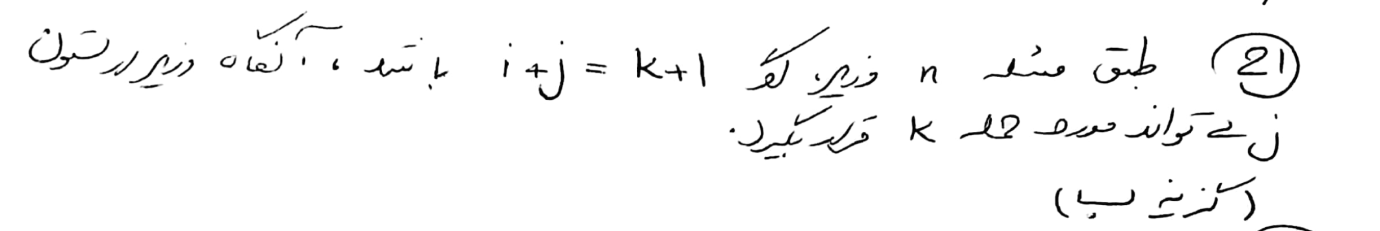 21) طبق مسئله n وزیر، اگر i+j = k+1 باشد، آنگاه وزیر در ستون
j می تواند مورد حمله k قرار بگیرد.
(گزینه ب)